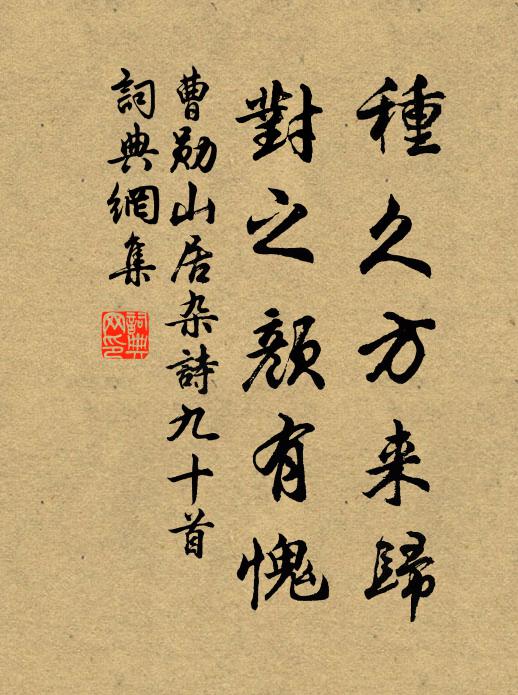 種久方来歸
對之顔有愧
曹勛山居杂詩九十首
詞典網集
詞典網印